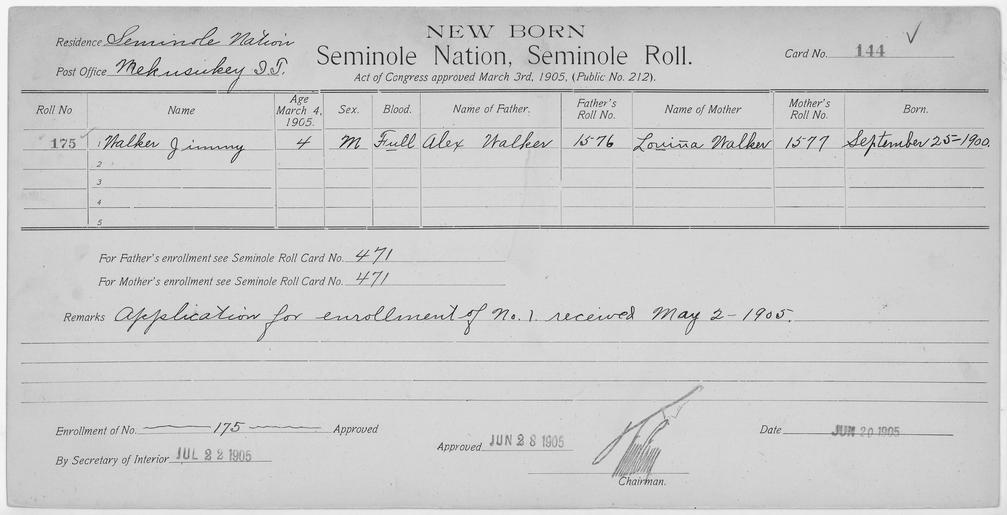 NEW BORN
Residence Seminole Nation
Seminole Nation, Seminole Roll.
Card No. 144
Post Office Mekusukey I.T.
Act of Congress approved March 3rd, 1905, (Public No. 212).
Roll No Name Age March 4, 1905. Sex. Blood. Name of Father. Father's Roll No. Name of Mother Mother's Roll No. Born.
175 1 Walker Jimmy 4 M Full Alex Walker 1576 Louina Walker 1577 September 25-1900.
2
3
4
5
For Father's enrollment see Seminole Roll Card No. 471
For Mother's enrollment see Seminole Roll Card No. 471
Remarks Application for enrollment of No. 1. received May 2-1905.
Enrollment of No. 175 Approved
By Secretary of Interior JUL 22 1905
Approved JUN 28 1905
Chairman.
Date JUN 20 1905